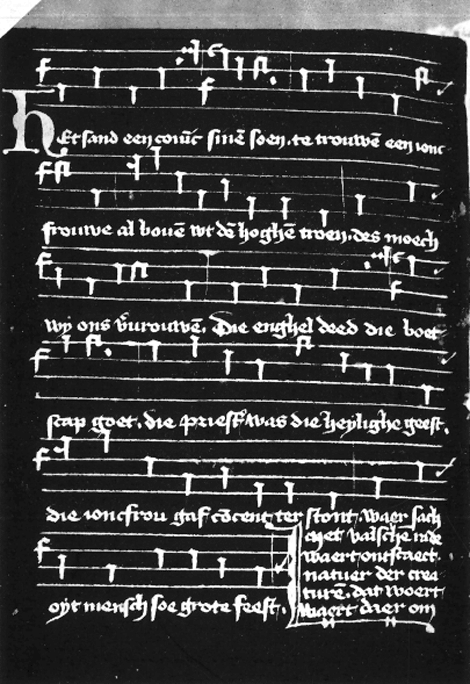 HEt sand een coūc sinē soen. te trouwē een ionc
frouwe al bouē wt dē hoghē troen. des moech
wy ons v̄urouwē. Die enghel deed die boet
scap goet. die priest was die heylighe geest.
die ioncfrou gaf cōcent ter stont. waer sach
oyt mensch soe grote feest.
met valsche
waert ontfaect.
natuer der crea
turē. dat woert
waert daer om